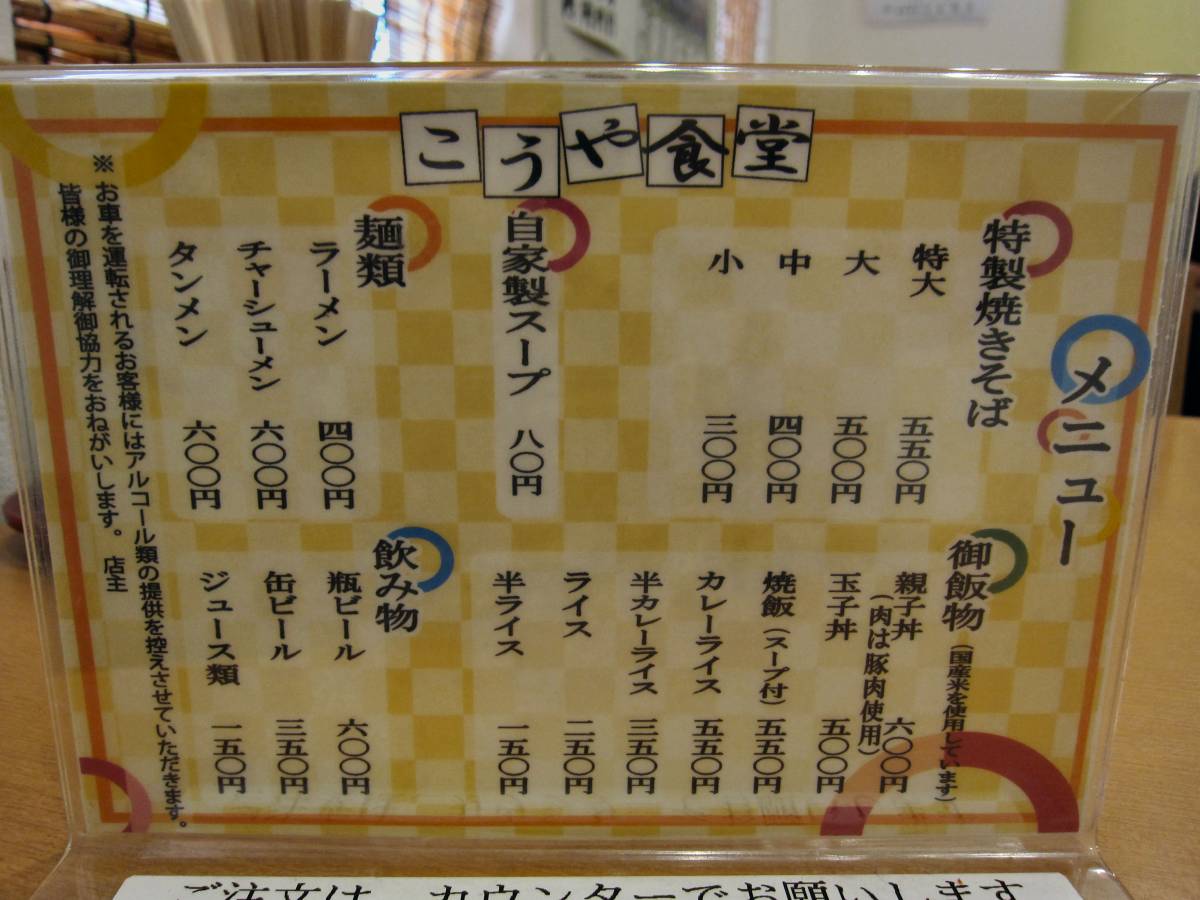 こうや食堂
メニュー
特製焼きそば
特大 五五〇円
大 五〇〇円
中 四〇〇円
小 三〇〇円
自家製スープ 八〇円
麺類
ラーメン 四〇〇円
チャーシューメン 六〇〇円
タンメン 六〇〇円
御飯物(国産米を使用しています)
親子丼 六〇〇円
(肉は豚肉使用)
玉子丼 五〇〇円
焼飯(スープ付) 五五〇円
カレーライス 五五〇円
半カレーライス 三五〇円
ライス 二五〇円
半ライス 一五〇円
飲み物
瓶ビール 六〇〇円
缶ビール 三五〇円
ジュース類 一五〇円
※お車を運転されるお客様にはアルコール類の提供を控えさせていただきます。
皆様の御理解御協力をおねがいします。 店主
ご注文は、カウンターでお願いします